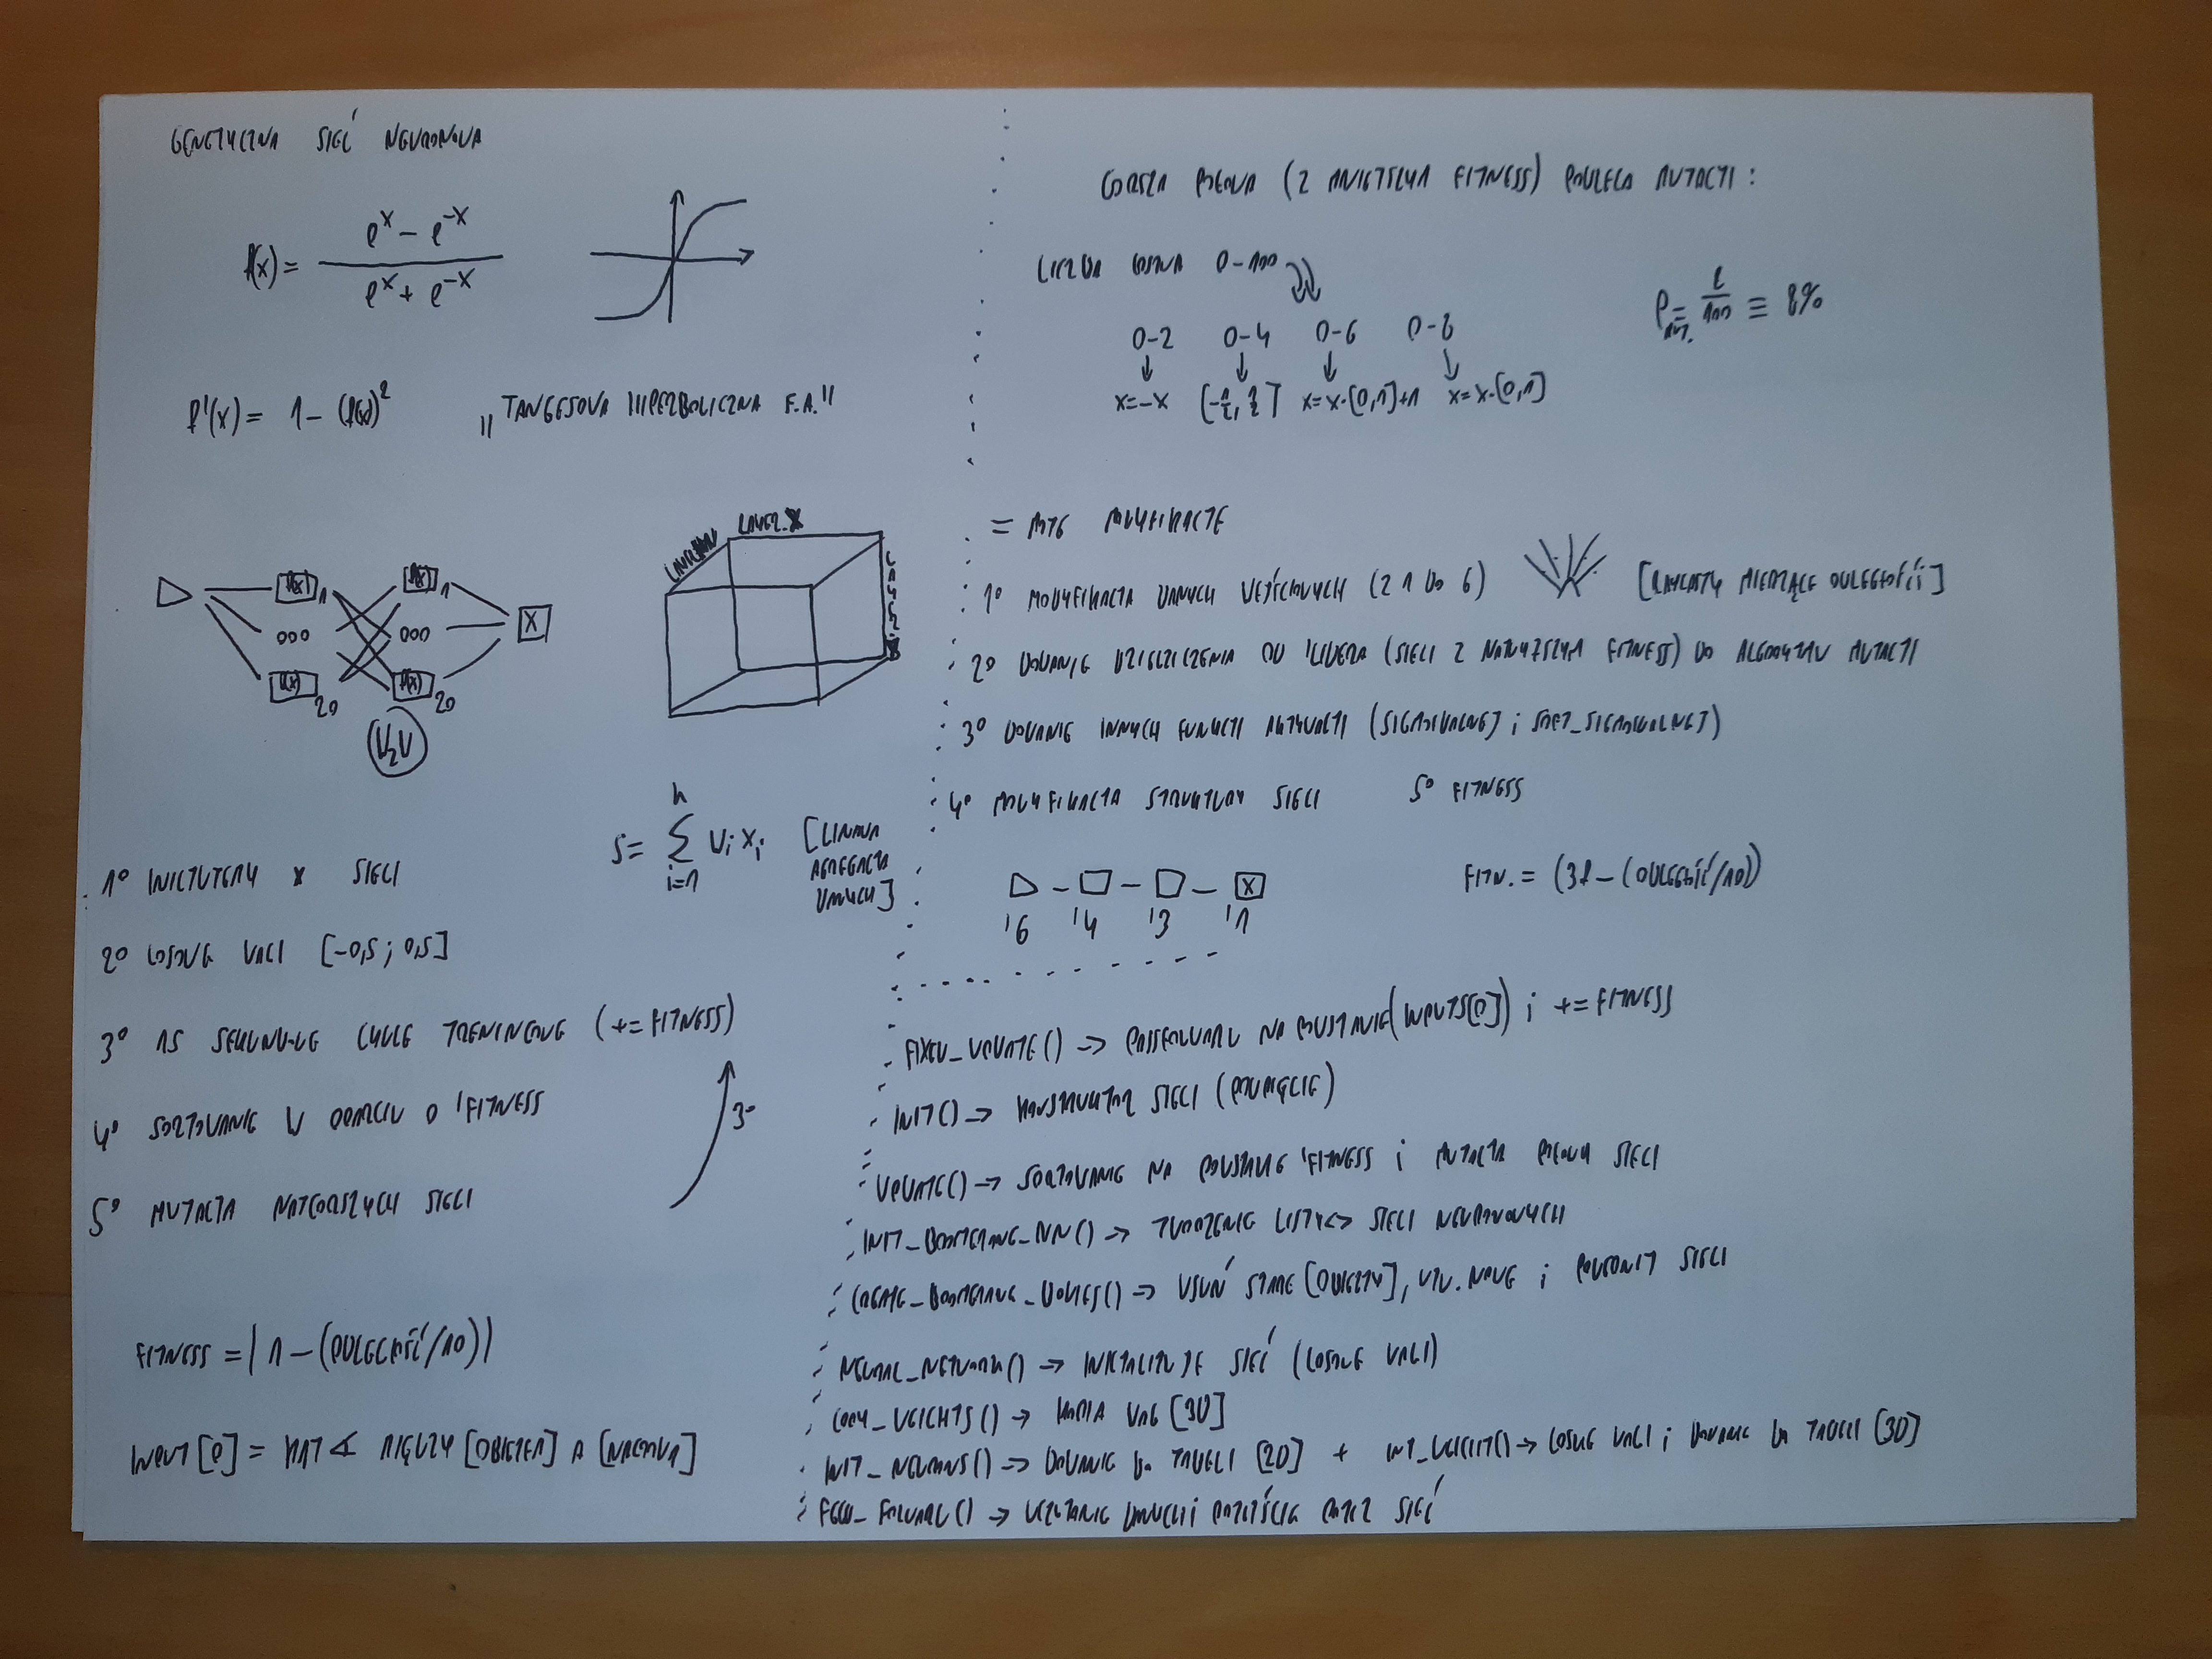 GENETYCZNA SIEĆ NEURONOWA
f(x) = (e^x - e^-x) / (e^x + e^-x)
f'(x) = 1 - (f(x))^2
„TANGESOVA HIPERBOLICZNA F.A."
f(x) 1 f(x) 1
000 000 X
f(x) 20 f(x) 20
LAYER X
S = Σ i=1 n Wi Xi [LINIOWA AGREGACJA DANYCH]
1° INICJUJEMY X SIECI
2° LOSOWE WAGI [-0,5 ; 0,5]
3° 15 SEKUNDOWE CYKLE TRENINGOWE (+= FITNESS)
4° SORTOWANIE W OPARCIU O 'FITNESS
3°
5° MUTACJA NAJGORSZYCH SIECI
FITNESS = | 1 - (ODLEGŁOŚĆ/10) |
INPUT [0] = KĄT ∢ MIĘDZY [OBIEKTEM] A [NAGRODĄ]
GORSZA POŁOWA (Z MNIEJSZYM FITNESS) PODLEGA MUTACJI :
LICZBA LOSOWA 0-100
0-2 0-4 0-6 0-8
x=-x [-1/2, 1/2] x=x·[0,1]+1 x=x·[0,1]
P = 8/100 ≡ 8%
= MOJE MODYFIKACJE
1° MODYFIKACJA DANYCH WEJŚCIOWYCH (Z 1 DO 6) [RAYCASTY MIERZĄCE ODLEGŁOŚCI]
2° DODANIE DZIEDZICZENIA OD 'LIDERA (SIECI Z NAJWYŻSZYM FITNESS) DO ALGORYTMU MUTACJI
3° DODANIE INNYCH FUNKCJI AKTYWACJI (SIGMOIDALNEJ i SOFT_SIGMOIDALNEJ)
4° MODYFIKACJA STRUKTURY SIECI 5° FITNESS
X
'6 '4 '3 '1
FITN. = (38 - (ODLEGŁOŚĆ/10))
FIXED_UPDATE() → FEEDFORWARD NA PODSTAWIE (INPUTS[0]) i += FITNESS
INIT() → KONSTRUKTOR SIECI (PODPIĘCIE)
UPDATE() → SORTOWANIE NA PODSTAWIE 'FITNESS i MUTACJA POŁOWY SIECI
INIT_BOOMERANG_NN() → TWORZENIE LISTY<> SIECI NEURONOWYCH
CREATE_BOOMERANG_BODIES() → USUŃ STARE [OBIEKTY], UTW. NOWE i PODEPNIJ SIECI
NEURAL_NETWORK() → INICJALIZUJE SIEĆ (LOSOWE WAGI)
COPY_WEIGHTS() → KOPIA WAG [3D]
INIT_NEURONS() → DODANIE DO TABELI [2D] + INIT_WEIGHT() → LOSUJE WAGI i DODANIE DO TABELI [3D]
FEED_FORWARD() → WCZYTANIE DANYCH i PRZEJŚCIE PRZEZ SIEĆ